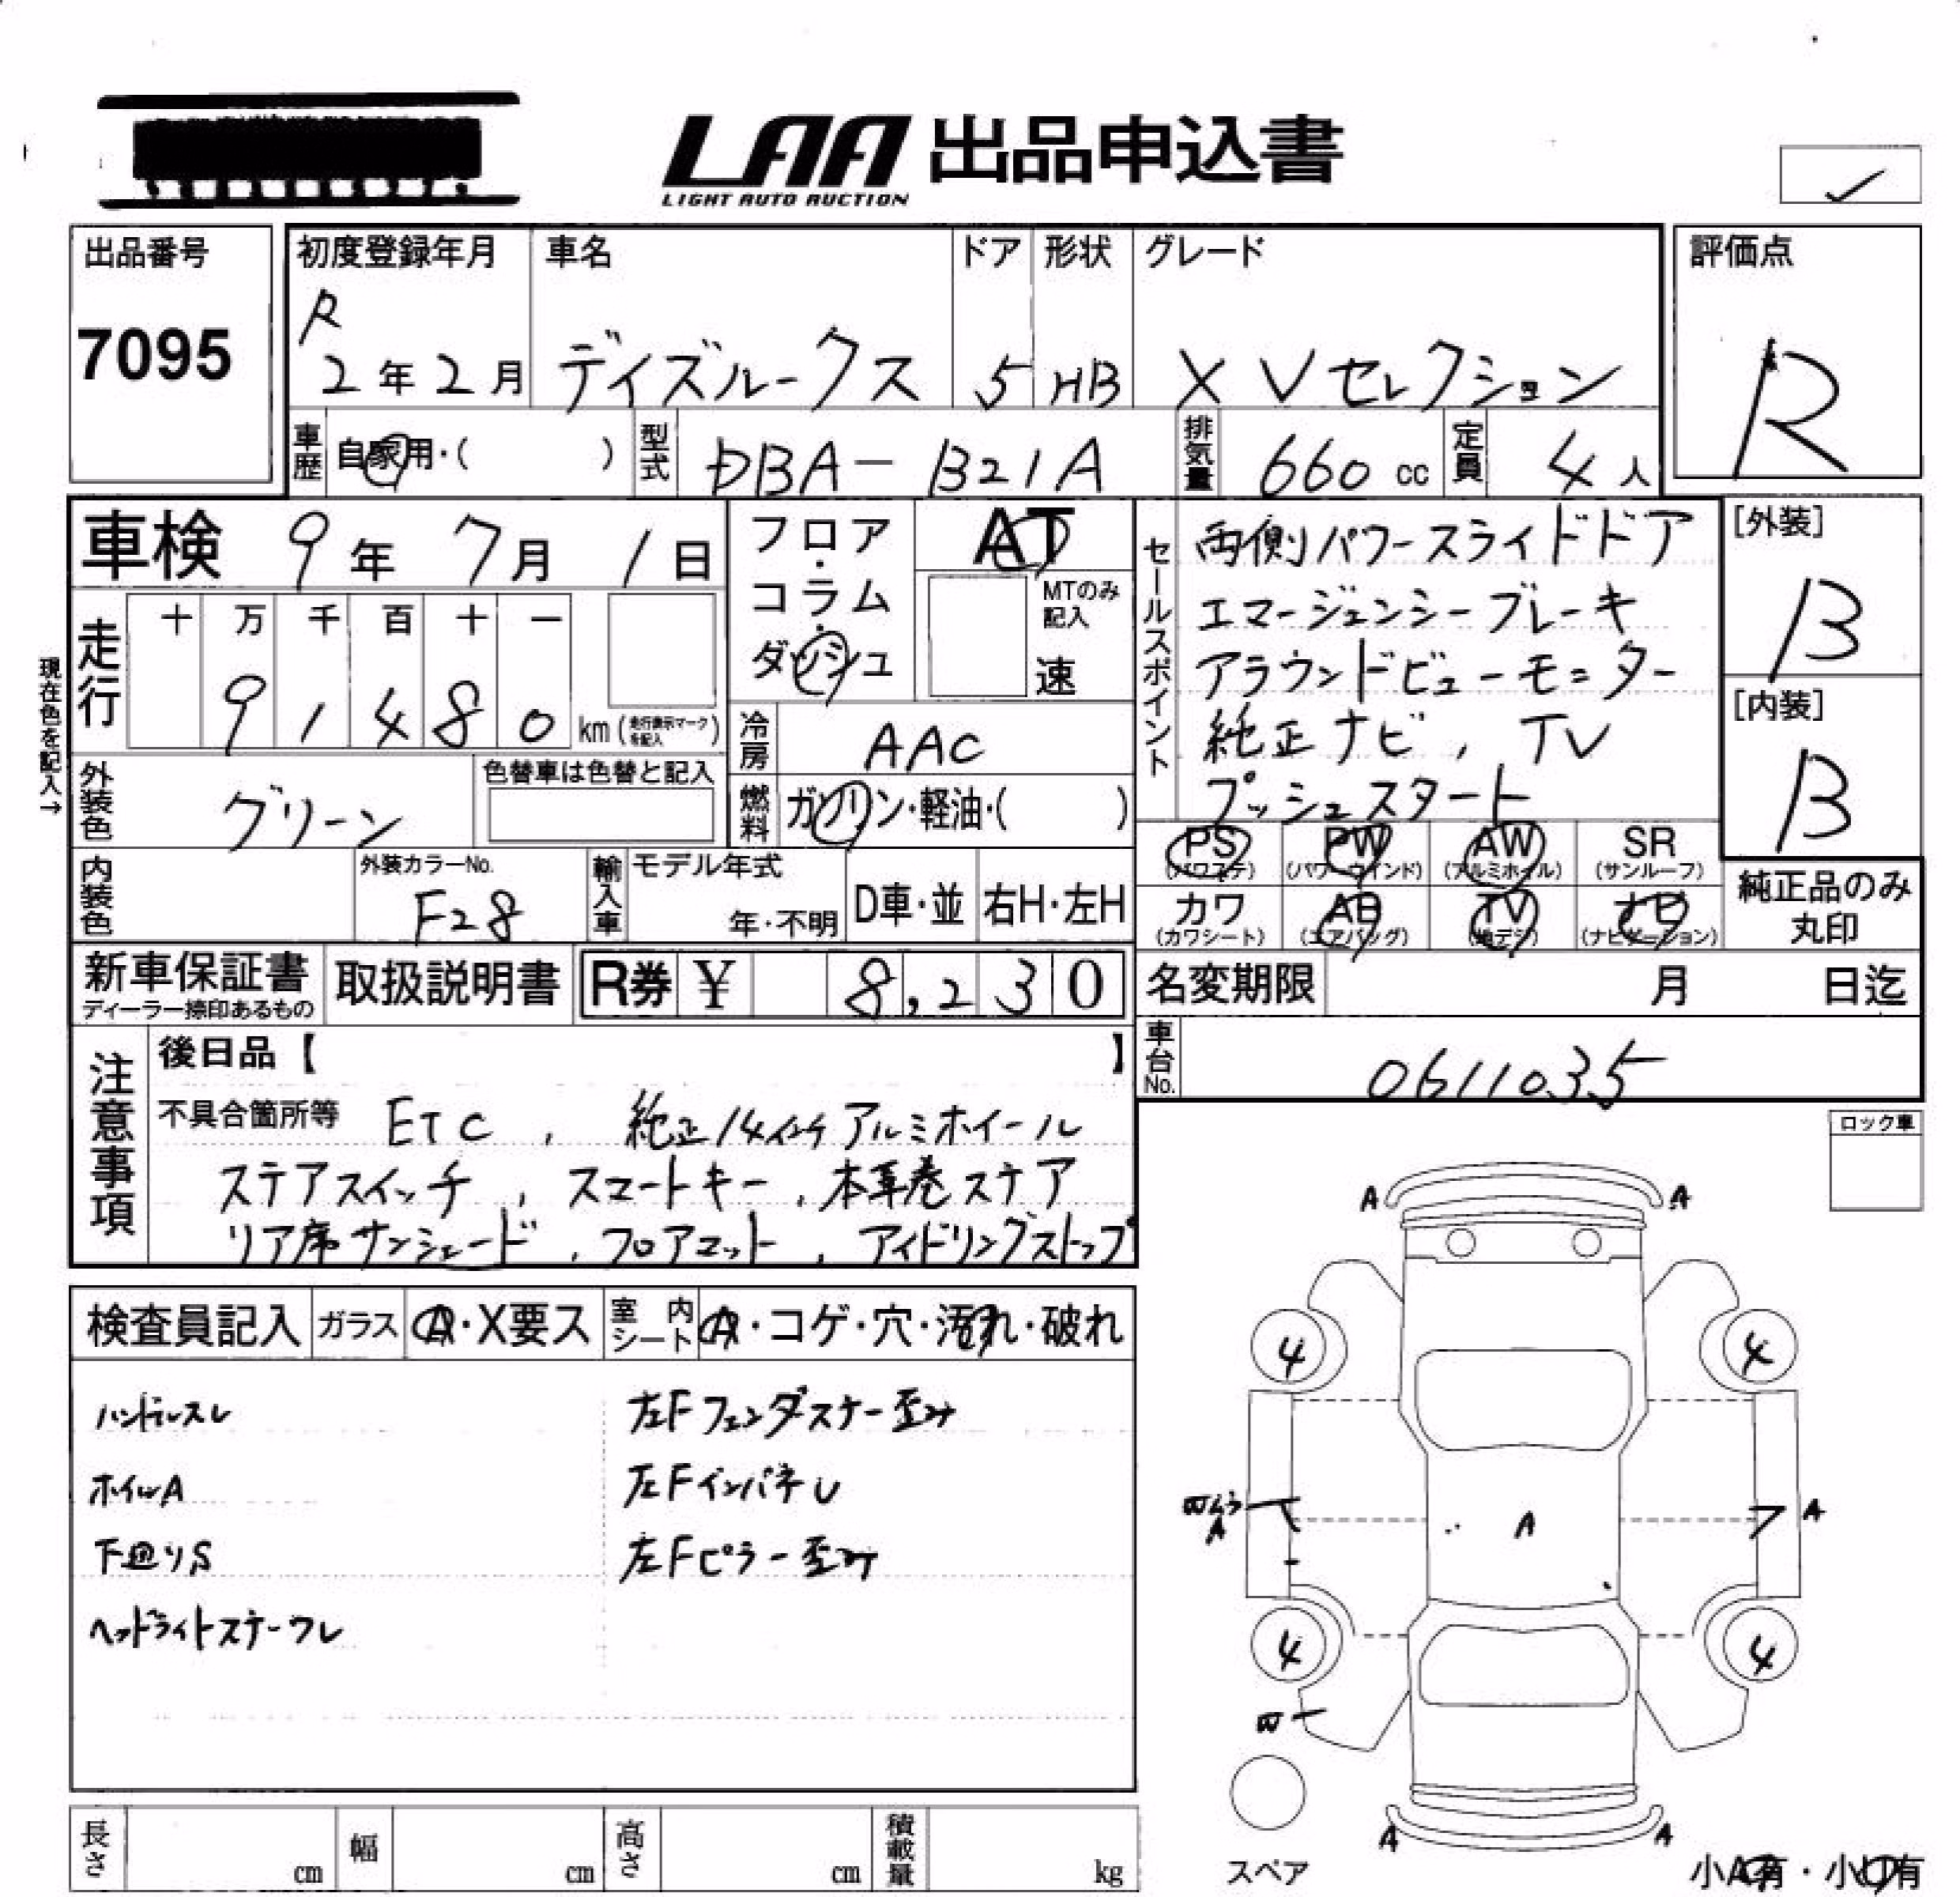 LAA 出品申込書
LIGHT AUTO AUCTION
出品番号
7095
初度登録年月
R
2年2月
車名
デイズルークス
ドア
5
形状
HB
グレード
X Vセレクション
評価点
R
車歴
自家用・( )
型式
DBA-B21A
排気量
660 cc
定員
4人
車検 9年 7月 1日
現在色を記入→
走行
十 万 千 百 十 一
9 1 4 8 0 km (走行表示マークを記入)
フロア・コラム・ダッシュ
AT
MTのみ記入
速
冷房
AAC
燃料
ガソリン・軽油・( )
外装色
グリーン
色替車は色替と記入
内装色
外装カラーNo.
F28
輸入車
モデル年式
年・不明
D車・並
右H・左H
セールスポイント
両側パワースライドドア
エマージェンシーブレーキ
アラウンドビューモニター
純正ナビ, TV
プッシュスタート
[外装]
B
[内装]
B
PS (パワステ)
PW (パワーウインド)
AW (アルミホイル)
SR (サンルーフ)
カワ (カワシート)
AB (エアバッグ)
TV (地デジ)
ナビ (ナビゲーション)
純正品のみ丸印
新車保証書
ディーラー捺印あるもの
取扱説明書
R券 ¥ 8,230
名変期限 月 日迄
車台No.
0611035
注意事項
後日品【 】
不具合箇所等 ETC, 純正14インチアルミホイール
ステアスイッチ, スマートキー, 本革巻ステア
リア席サンシェード, フロアマット, アイドリングストップ
ロック車
検査員記入
ガラス
A・X要ス
室内シート
A・コゲ・穴・汚れ・破れ
ハンドルスレ
ホイルA
下回りS
ヘッドライトステークレ
左Fフェンダステー歪み
左FインパネU
左Fピラー歪み
A A
4 4
A A A
4 4
A A
スペア
小A有・小U有
長さ cm
幅 cm
高さ cm
積載量 kg